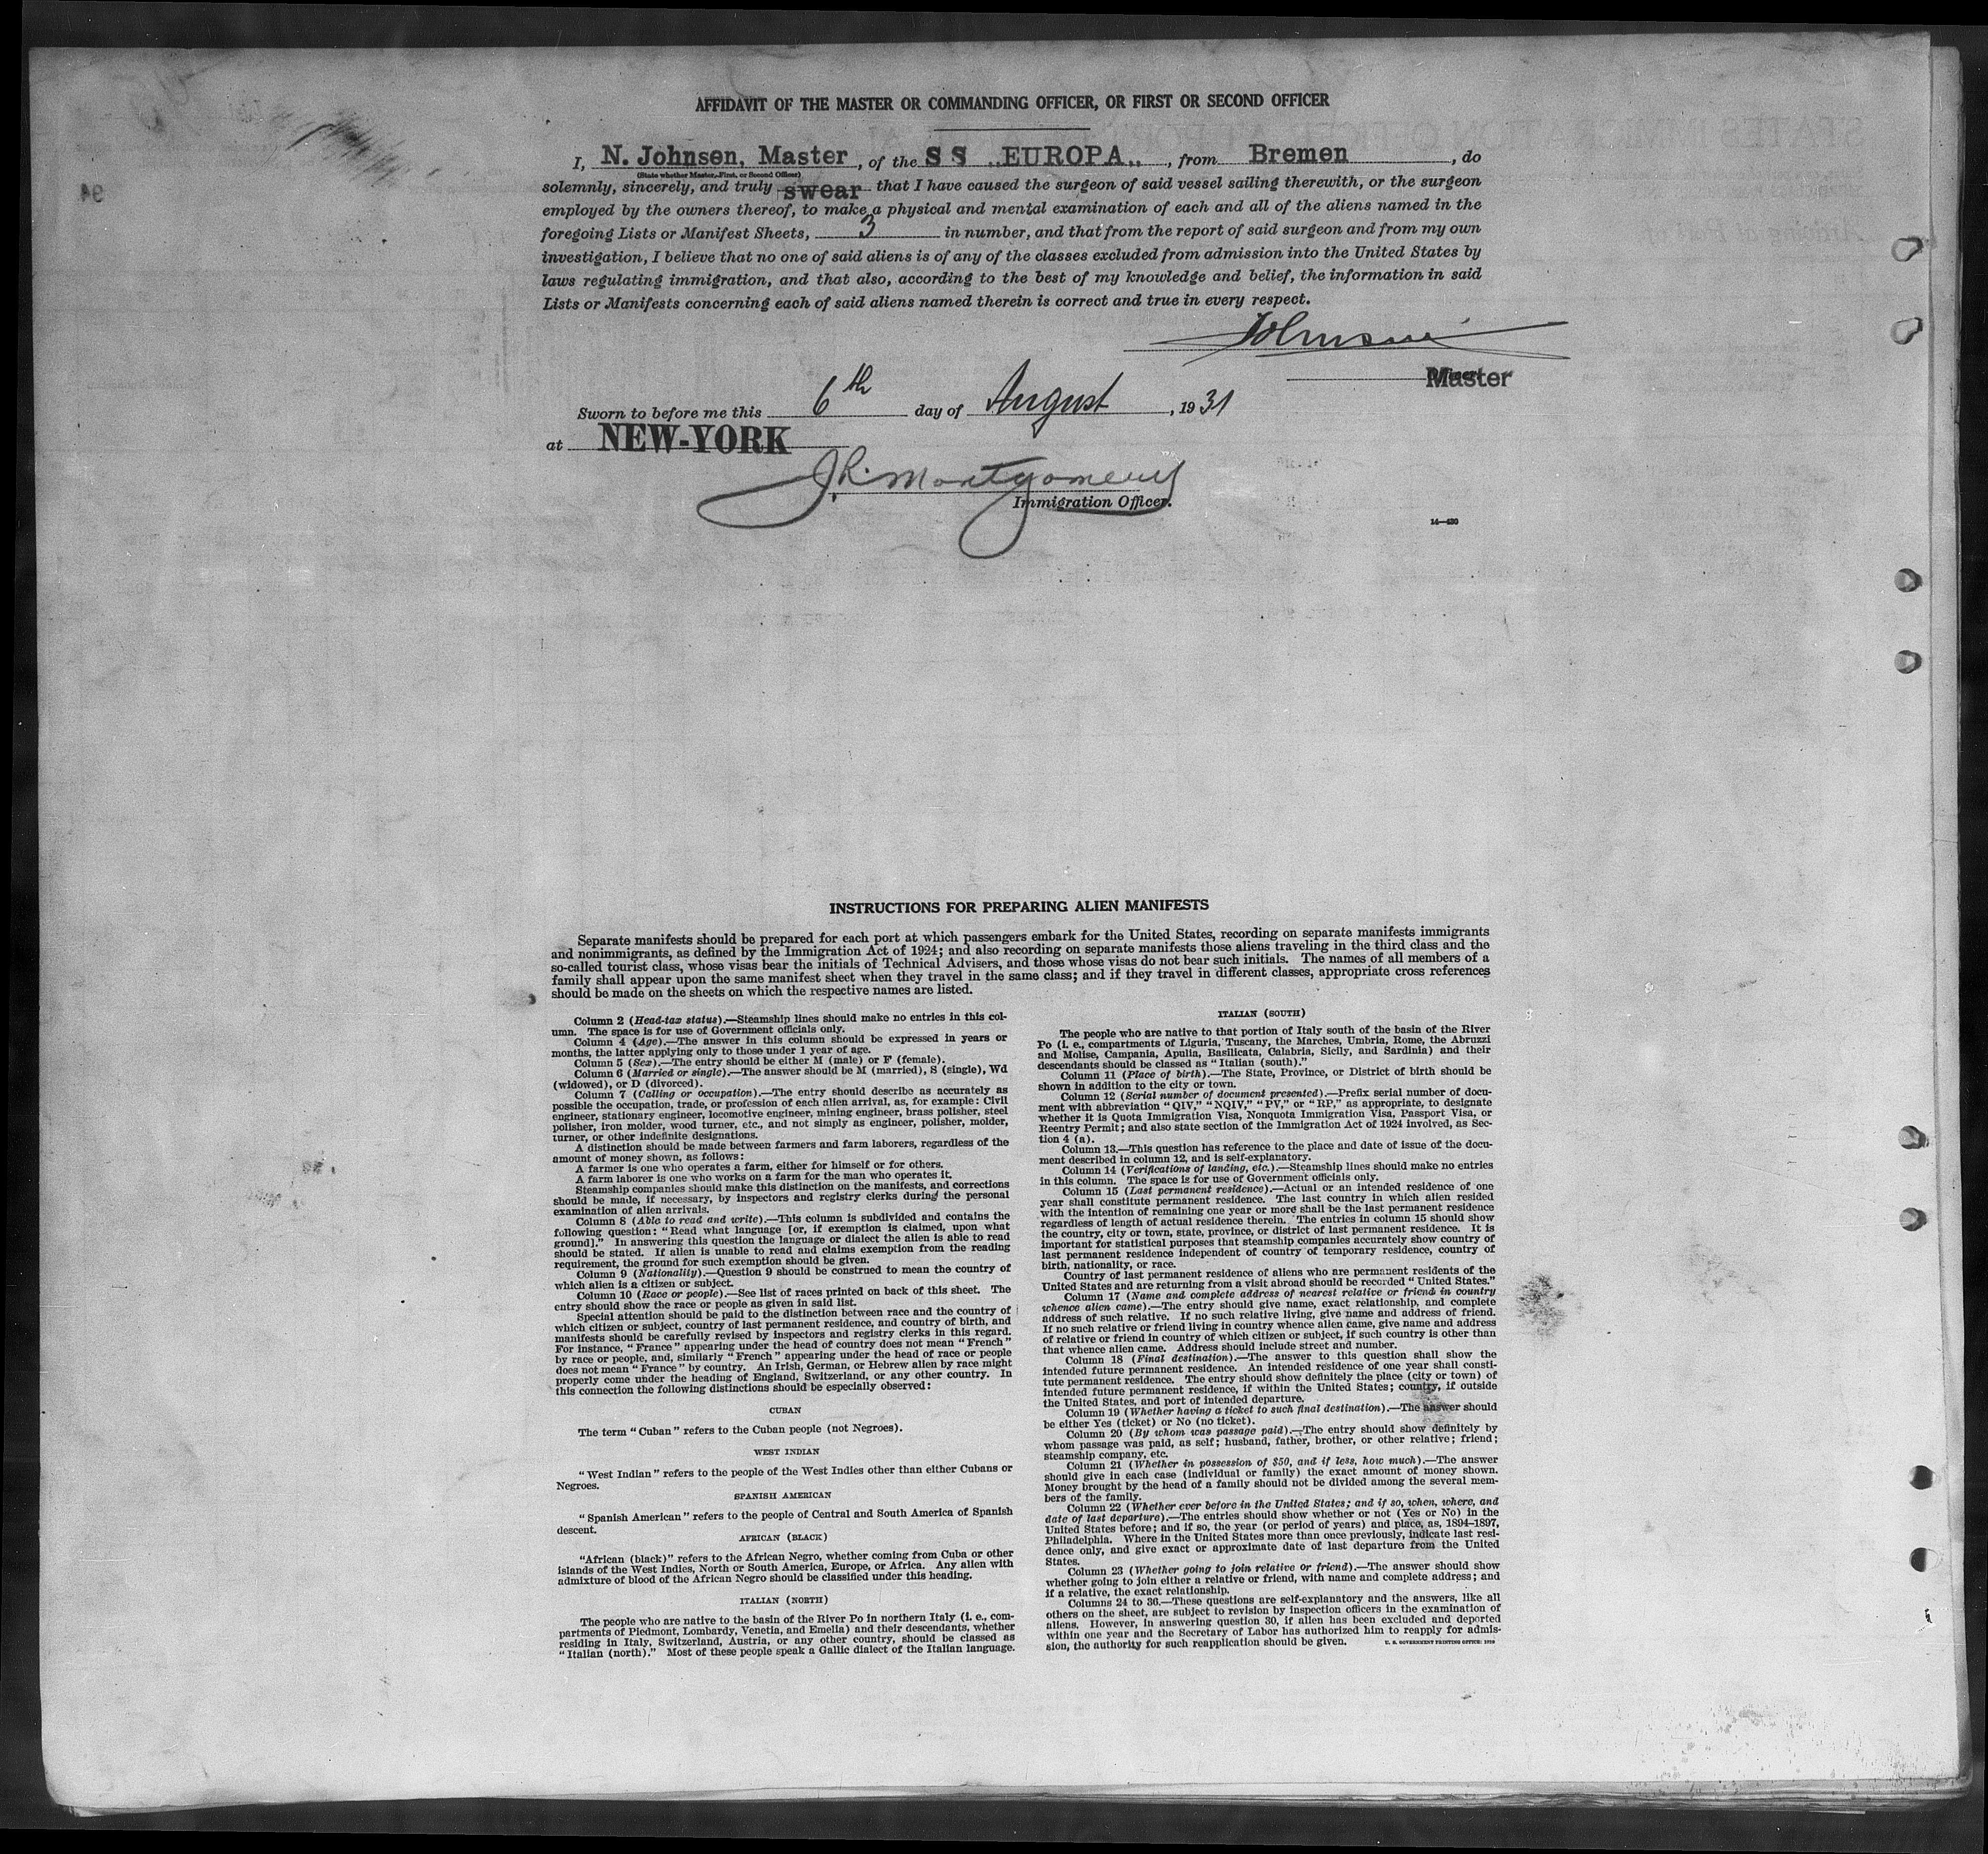 AFFIDAVIT OF THE MASTER OR COMMANDING OFFICER, OR FIRST OR SECOND OFFICER
I, N. Johnsen, Master, of the SS „EUROPA„, from Bremen, do
(State whether Master, First, or Second Officer)
solemnly, sincerely, and truly swear that I have caused the surgeon of said vessel sailing therewith, or the surgeon
employed by the owners thereof, to make a physical and mental examination of each and all of the aliens named in the
foregoing Lists or Manifest Sheets, 3 in number, and that from the report of said surgeon and from my own
investigation, I believe that no one of said aliens is of any of the classes excluded from admission into the United States by
laws regulating immigration, and that also, according to the best of my knowledge and belief, the information in said
Lists or Manifests concerning each of said aliens named therein is correct and true in every respect.
Johnsen
Master
Sworn to before me this 6th day of August, 1931
at NEW-YORK
J.R. Montgomery
Immigration Officer.
14—430
INSTRUCTIONS FOR PREPARING ALIEN MANIFESTS
Separate manifests should be prepared for each port at which passengers embark for the United States, recording on separate manifests immigrants
and nonimmigrants, as defined by the Immigration Act of 1924; and also recording on separate manifests those aliens traveling in the third class and the
so-called tourist class, whose visas bear the initials of Technical Advisers, and those whose visas do not bear such initials. The names of all members of a
family shall appear upon the same manifest sheet when they travel in the same class; and if they travel in different classes, appropriate cross references
should be made on the sheets on which the respective names are listed.
Column 2 (Head-tax status).—Steamship lines should make no entries in this col-
umn. The space is for use of Government officials only.
Column 4 (Age).—The answer in this column should be expressed in years or
months, the latter applying only to those under 1 year of age.
Column 5 (Sex).—The entry should be either M (male) or F (female).
Column 6 (Married or single).—The answer should be M (married), S (single), Wd
(widowed), or D (divorced).
Column 7 (Calling or occupation).—The entry should describe as accurately as
possible the occupation, trade, or profession of each alien arrival, as, for example: Civil
engineer, stationary engineer, locomotive engineer, mining engineer, brass polisher, steel
polisher, iron molder, wood turner, etc., and not simply as engineer, polisher, molder,
turner, or other indefinite designations.
A distinction should be made between farmers and farm laborers, regardless of the
amount of money shown, as follows:
A farmer is one who operates a farm, either for himself or for others.
A farm laborer is one who works on a farm for the man who operates it.
Steamship companies should make this distinction on the manifests, and corrections
should be made, if necessary, by inspectors and registry clerks during the personal
examination of alien arrivals.
Column 8 (Able to read and write).—This column is subdivided and contains the
following question: "Read what language [or, if exemption is claimed, upon what
ground]." In answering this question the language or dialect the alien is able to read
should be stated. If alien is unable to read and claims exemption from the reading
requirement, the ground for such exemption should be given.
Column 9 (Nationality).—Question 9 should be construed to mean the country of
which alien is a citizen or subject.
Column 10 (Race or people).—See list of races printed on back of this sheet. The
entry should show the race or people as given in said list.
Special attention should be paid to the distinction between race and the country of
which citizen or subject, country of last permanent residence, and country of birth, and
manifests should be carefully revised by inspectors and registry clerks in this regard.
For instance, "France" appearing under the head of country does not mean "French"
by race or people, and, similarly "French" appearing under the head of race or people
does not mean "France" by country. An Irish, German, or Hebrew alien by race might
properly come under the heading of England, Switzerland, or any other country. In
this connection the following distinctions should be especially observed:
CUBAN
The term "Cuban" refers to the Cuban people (not Negroes).
WEST INDIAN
"West Indian" refers to the people of the West Indies other than either Cubans or
Negroes.
SPANISH AMERICAN
"Spanish American" refers to the people of Central and South America of Spanish
descent.
AFRICAN (BLACK)
"African (black)" refers to the African Negro, whether coming from Cuba or other
islands of the West Indies, North or South America, Europe, or Africa. Any alien with
admixture of blood of the African Negro should be classified under this heading.
ITALIAN (NORTH)
The people who are native to the basin of the River Po in northern Italy (i. e., com-
partments of Piedmont, Lombardy, Venetia, and Emelia) and their descendants, whether
residing in Italy, Switzerland, Austria, or any other country, should be classed as
"Italian (north)." Most of these people speak a Gallic dialect of the Italian language.
ITALIAN (SOUTH)
The people who are native to that portion of Italy south of the basin of the River
Po (i. e., compartments of Liguria, Tuscany, the Marches, Umbria, Rome, the Abruzzi
and Molise, Campania, Apulia, Basilicata, Calabria, Sicily, and Sardinia) and their
descendants should be classed as "Italian (south)."
Column 11 (Place of birth).—The State, Province, or District of birth should be
shown in addition to the city or town.
Column 12 (Serial number of document presented).—Prefix serial number of docu-
ment with abbreviation "QIV," "NQIV," "PV," or "RP," as appropriate, to designate
whether it is Quota Immigration Visa, Nonquota Immigration Visa, Passport Visa, or
Reentry Permit; and also state section of the Immigration Act of 1924 involved, as Sec-
tion 4 (a).
Column 13.—This question has reference to the place and date of issue of the docu-
ment described in column 12, and is self-explanatory.
Column 14 (Verifications of landing, etc.).—Steamship lines should make no entries
in this column. The space is for use of Government officials only.
Column 15 (Last permanent residence).—Actual or an intended residence of one
year shall constitute permanent residence. The last country in which alien resided
with the intention of remaining one year or more shall be the last permanent residence
regardless of length of actual residence therein. The entries in column 15 should show
the country, city or town, state, province, or district of last permanent residence. It is
important for statistical purposes that steamship companies accurately show country of
last permanent residence independent of country of temporary residence, country of
birth, nationality, or race.
Country of last permanent residence of aliens who are permanent residents of the
United States and are returning from a visit abroad should be recorded "United States."
Column 17 (Name and complete address of nearest relative or friend in country
whence alien came).—The entry should give name, exact relationship, and complete
address of such relative. If no such relative living, give name and address of friend.
If no such relative or friend living in country whence alien came, give name and address
of relative or friend in country of which citizen or subject, if such country is other than
that whence alien came. Address should include street and number.
Column 18 (Final destination).—The answer to this question shall show the
intended future permanent residence. An intended residence of one year shall consti-
tute permanent residence. The entry should show definitely the place (city or town) of
intended future permanent residence, if within the United States; country, if outside
the United States, and port of intended departure.
Column 19 (Whether having a ticket to such final destination).—The answer should
be either Yes (ticket) or No (no ticket).
Column 20 (By whom was passage paid).—The entry should show definitely by
whom passage was paid, as self; husband, father, brother, or other relative; friend;
steamship company, etc.
Column 21 (Whether in possession of $50, and if less, how much).—The answer
should give in each case (individual or family) the exact amount of money shown.
Money brought by the head of a family should not be divided among the several mem-
bers of the family.
Column 22 (Whether ever before in the United States; and if so, when, where, and
date of last departure).—The entries should show whether or not (Yes or No) in the
United States before; and if so, the year (or period of years) and place, as, 1894-1897,
Philadelphia. Where in the United States more than once previously, indicate last resi-
dence only, and give exact or approximate date of last departure from the United
States.
Column 23 (Whether going to join relative or friend).—The answer should show
whether going to join either a relative or friend, with name and complete address; and
if a relative, the exact relationship.
Columns 24 to 36.—These questions are self-explanatory and the answers, like all
others on the sheet, are subject to revision by inspection officers in the examination of
aliens. However, in answering question 30, if alien has been excluded and deported
within one year and the Secretary of Labor has authorized him to reapply for admis-
sion, the authority for such reapplication should be given.
U. S. GOVERNMENT PRINTING OFFICE: